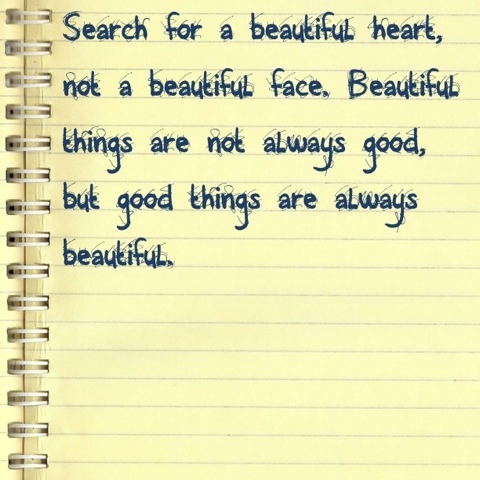 Search for a beautiful heart,
not a beautiful face. Beautiful
things are not always good,
but good things are always
beautiful.